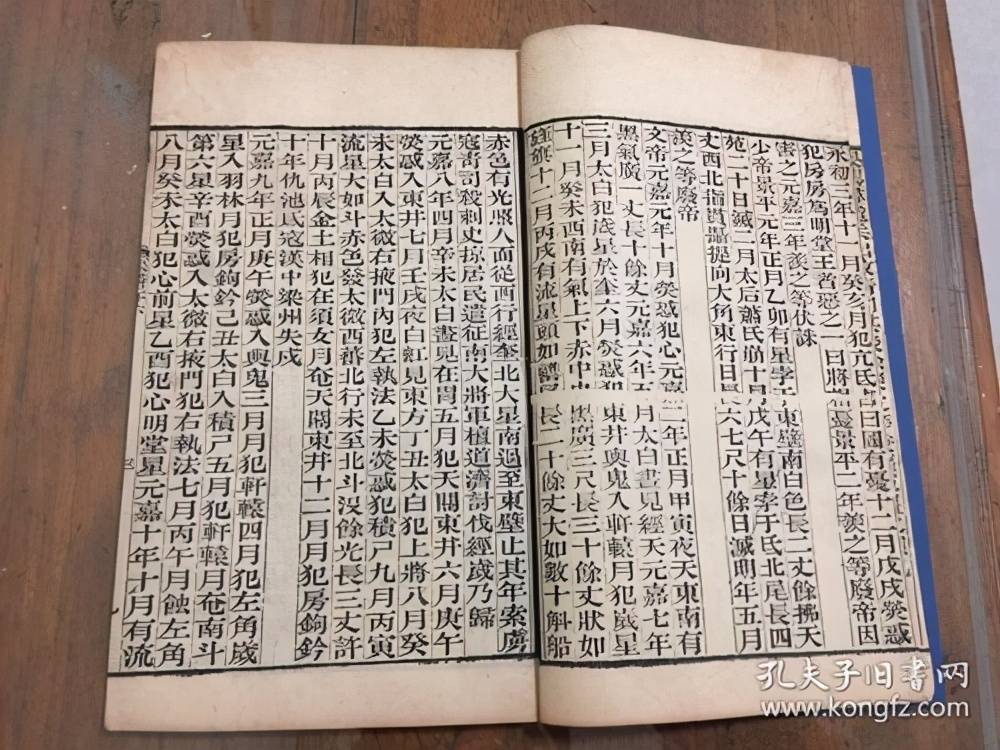 永初三年十一月癸亥月犯亢氐占曰國有憂十二月戊戌熒惑
犯房房為明堂王者惡之一曰將相憂景平二年羨之等廢帝因
害之元嘉三年羨之等伏誅
少帝景平元年正月乙卯有星孛于東壁南白色長二丈餘拂天
苑二十日滅二月太后蕭氏崩十月戊午有星孛于氐北尾長四
丈西北指貫攝提向大角東行日長六七尺十餘日滅明年五月
羨之等廢帝
文帝元嘉元年十月熒惑犯心元嘉二年正月甲寅夜天東南有
黑氣廣一丈長十餘丈元嘉六年五月太白晝見經天元嘉七年
三月太白犯歲星於奎六月熒惑犯東井輿鬼入軒轅月犯歲星
十一月癸未西南有氣上下赤中黑廣三尺長三十餘丈狀如
旌旗十二月丙戌有流星頭如甕長二十餘丈大如數十斛船
赤色有光照人面從西行經奎北大星南過至東壁止其年索虜
寇青司殺刺史掠居民遣征南大將軍檀道濟討伐經歲乃歸
元嘉八年四月辛未太白晝見在胃五月犯天關東井六月庚午
熒惑入東井七月壬戌夜白虹見東方丁丑太白犯上將八月癸
未太白入太微右掖門內犯左執法乙未熒惑犯積尸九月丙寅
流星大如斗赤色發太微西蕃北行未至北斗沒餘光長三丈許
十月丙辰金土相犯在須女月奄天關東井十二月月犯房鉤鈐
十年仇池氐寇漢中梁州失戍
元嘉九年正月庚午熒惑入輿鬼三月月犯軒轅四月犯左角歲
星入羽林月犯房鉤鈐己丑太白入積尸五月犯軒轅月奄南斗
第六星辛酉熒惑入太微右掖門犯右執法七月丙午月蝕左角
八月癸未太白犯心前星乙酉犯心明堂星元嘉十年十月有流
孔夫子旧书网
www.kongfz.com